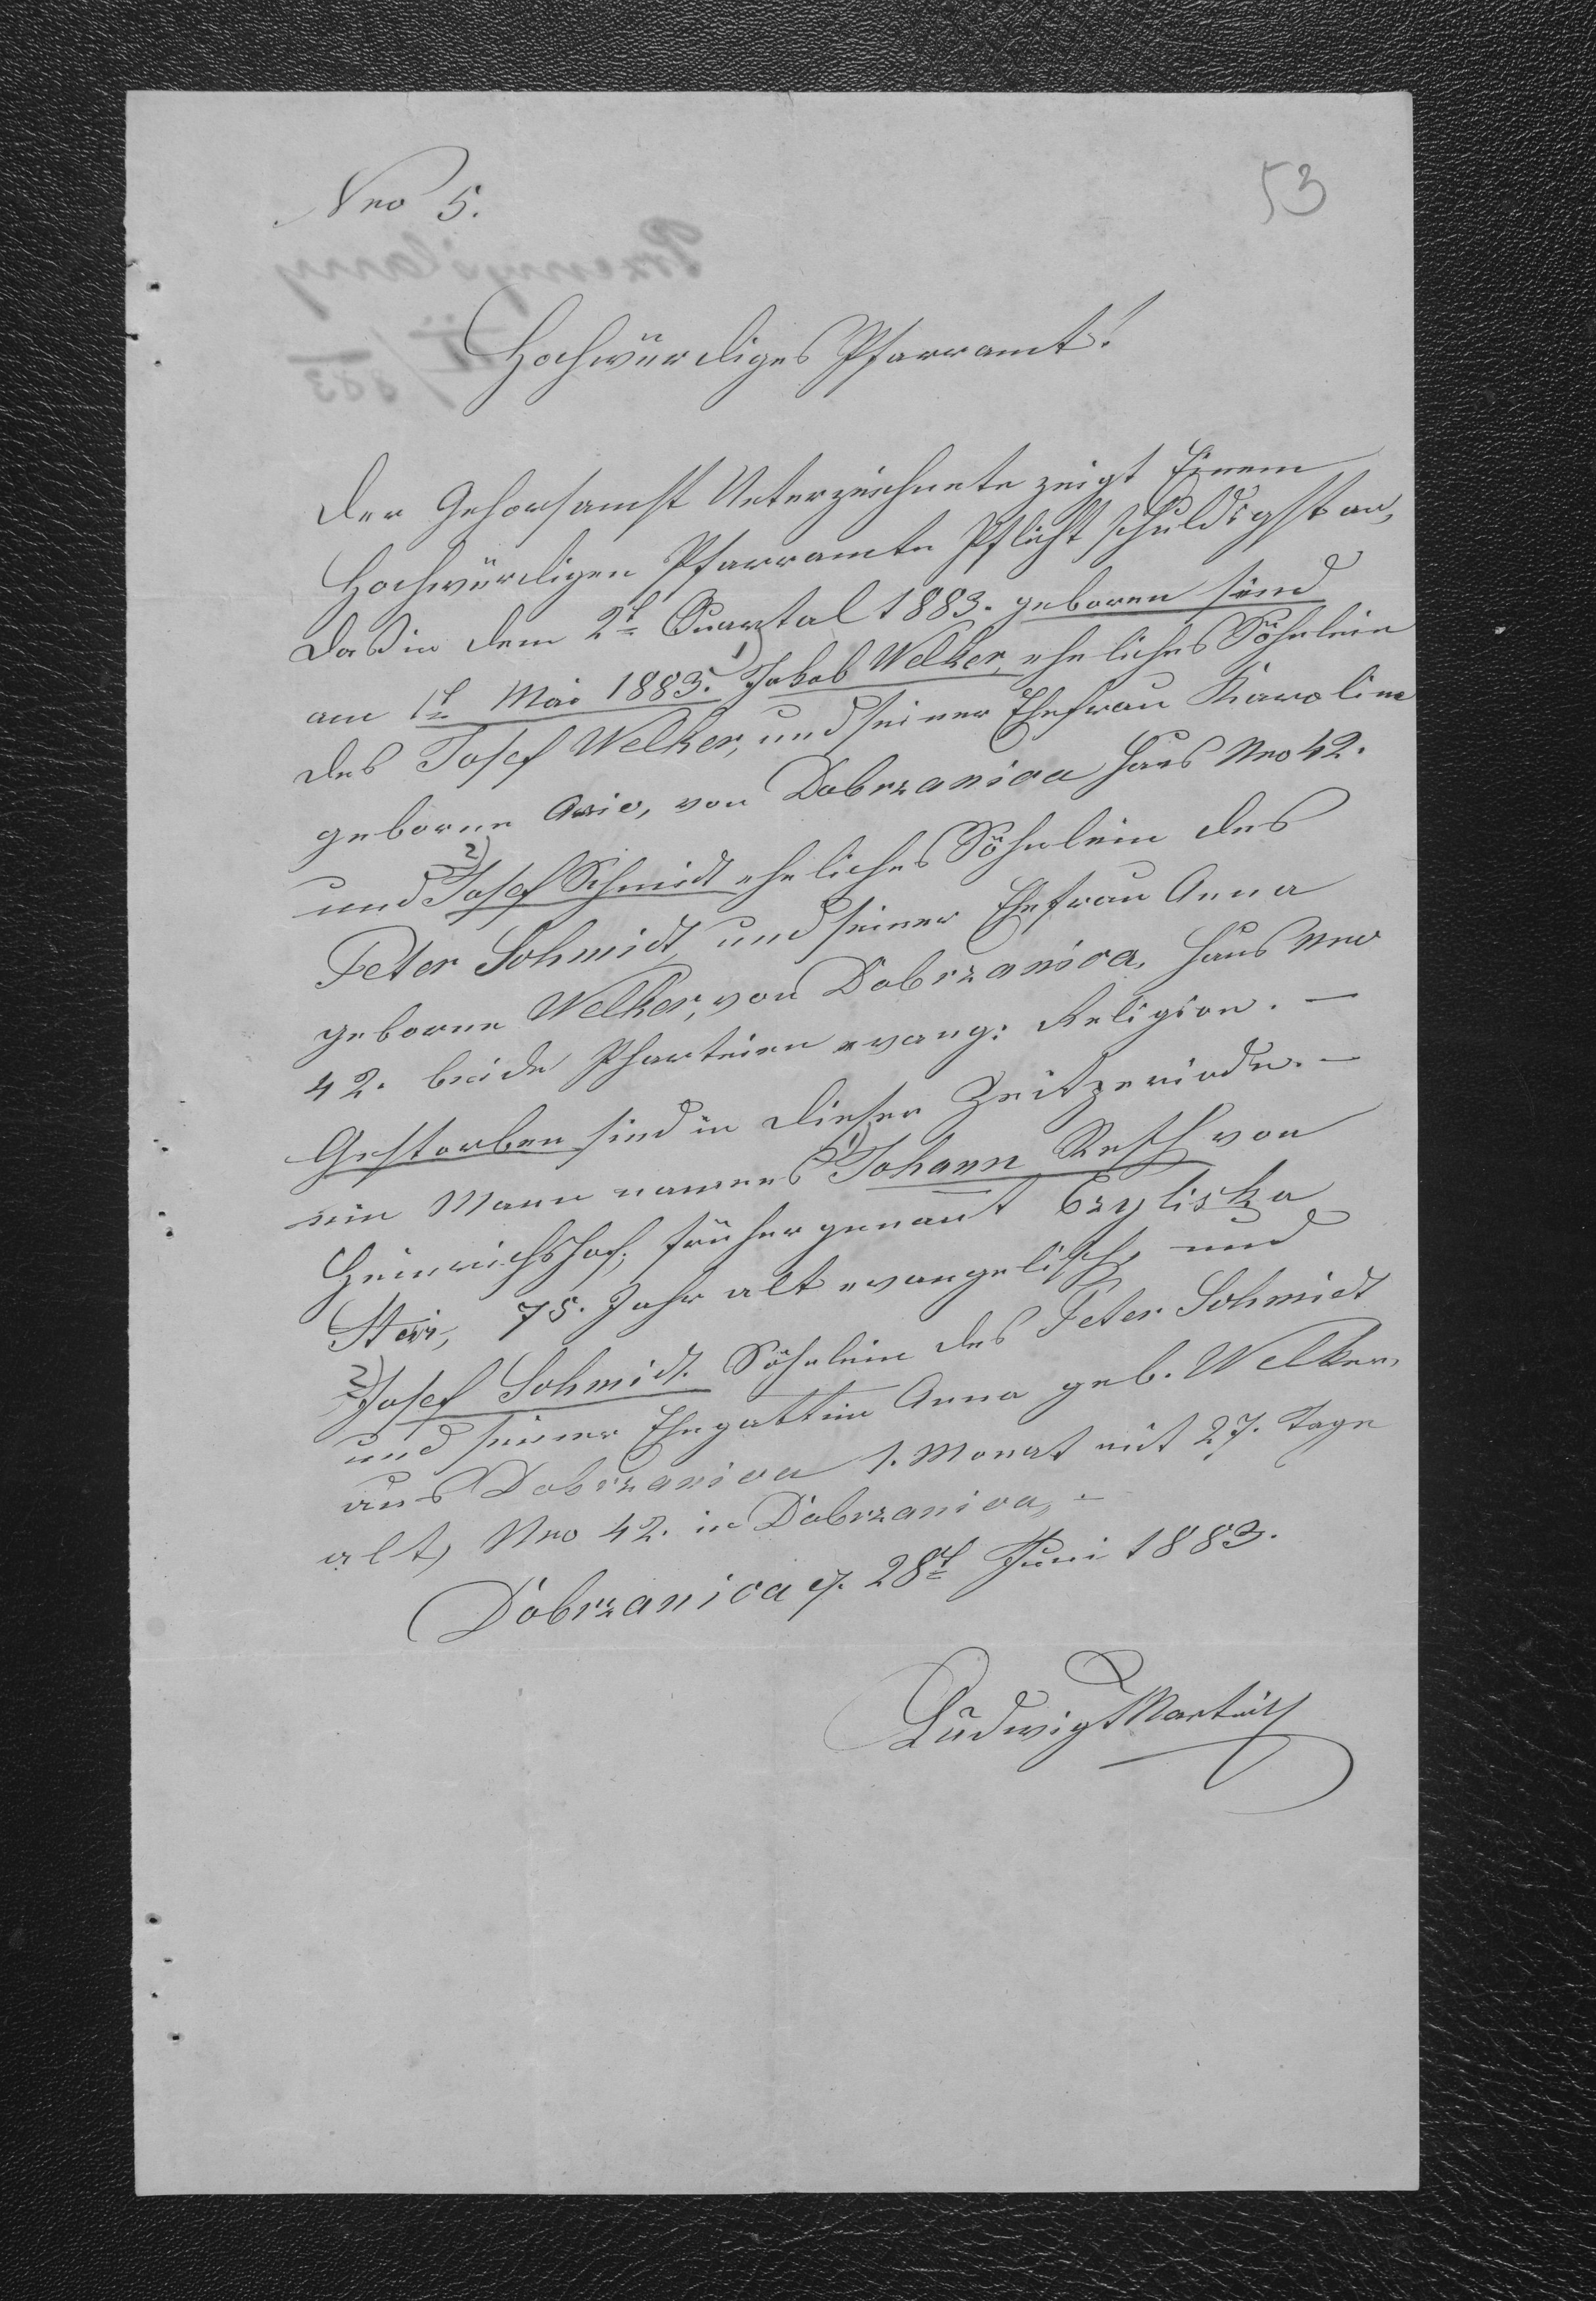 Nro 5.
53
Hochwürdiges Pfarramt!
Der Gehorsamst Unterzeichnete zeigt Einem
Hochwürdigen Pfarramte Pflicht schuldigst an,
daß in dem 2t Quartal 1883. geboren sind
am 1t Mai 1883. 1) Jakob Welker, eheliches Söhnlein
des Josef Welker, und seiner Ehefrau Karoline
geborne von Dobrzanica Haus Nro 42.
und 2) Josef Schmidt eheliches Söhnlein des
Peter Schmidt, und seiner Ehefrau Anna
geborne Welker, von Dobrzanica, Haus Nro
42. beide Pharteien evang: Religion. —
Gestorben sind in dieser Zeitperiode. —
ein Mann namens 1) Johann Resch von
Heinrichshof, früher genant
75. Jahr alt evangelisch, und
2) Josef Schmidt. Söhnlein des Peter Schmidt
und seiner Ehegattin Anna geb. Welker,
aus Dobrzanica 1. Monat mit 27. Tage
alt, Nro 42. in Dobrzanica, –
Dobrzanica 28t Juni 1883.
Ludwig